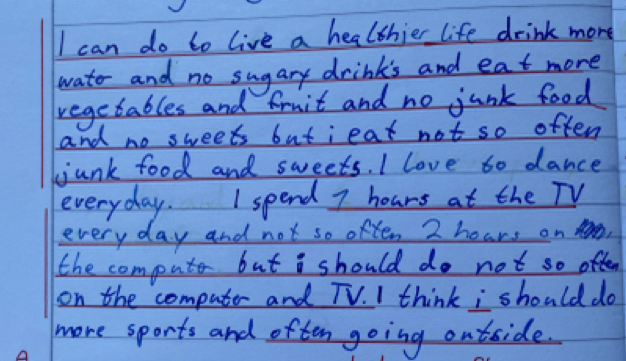 I can do to live a healthier life drink more
water and no sugary drink's and eat more
vegetables and fruit and no junk food
and no sweets but i eat not so often
junk food and sweets. I love to dance
everyday. I spend 1 hours at the TV
every day and not so often 2 hours on
the computer but i should do not so often
on the computer and TV. I think i should do
more sports and often going outside.